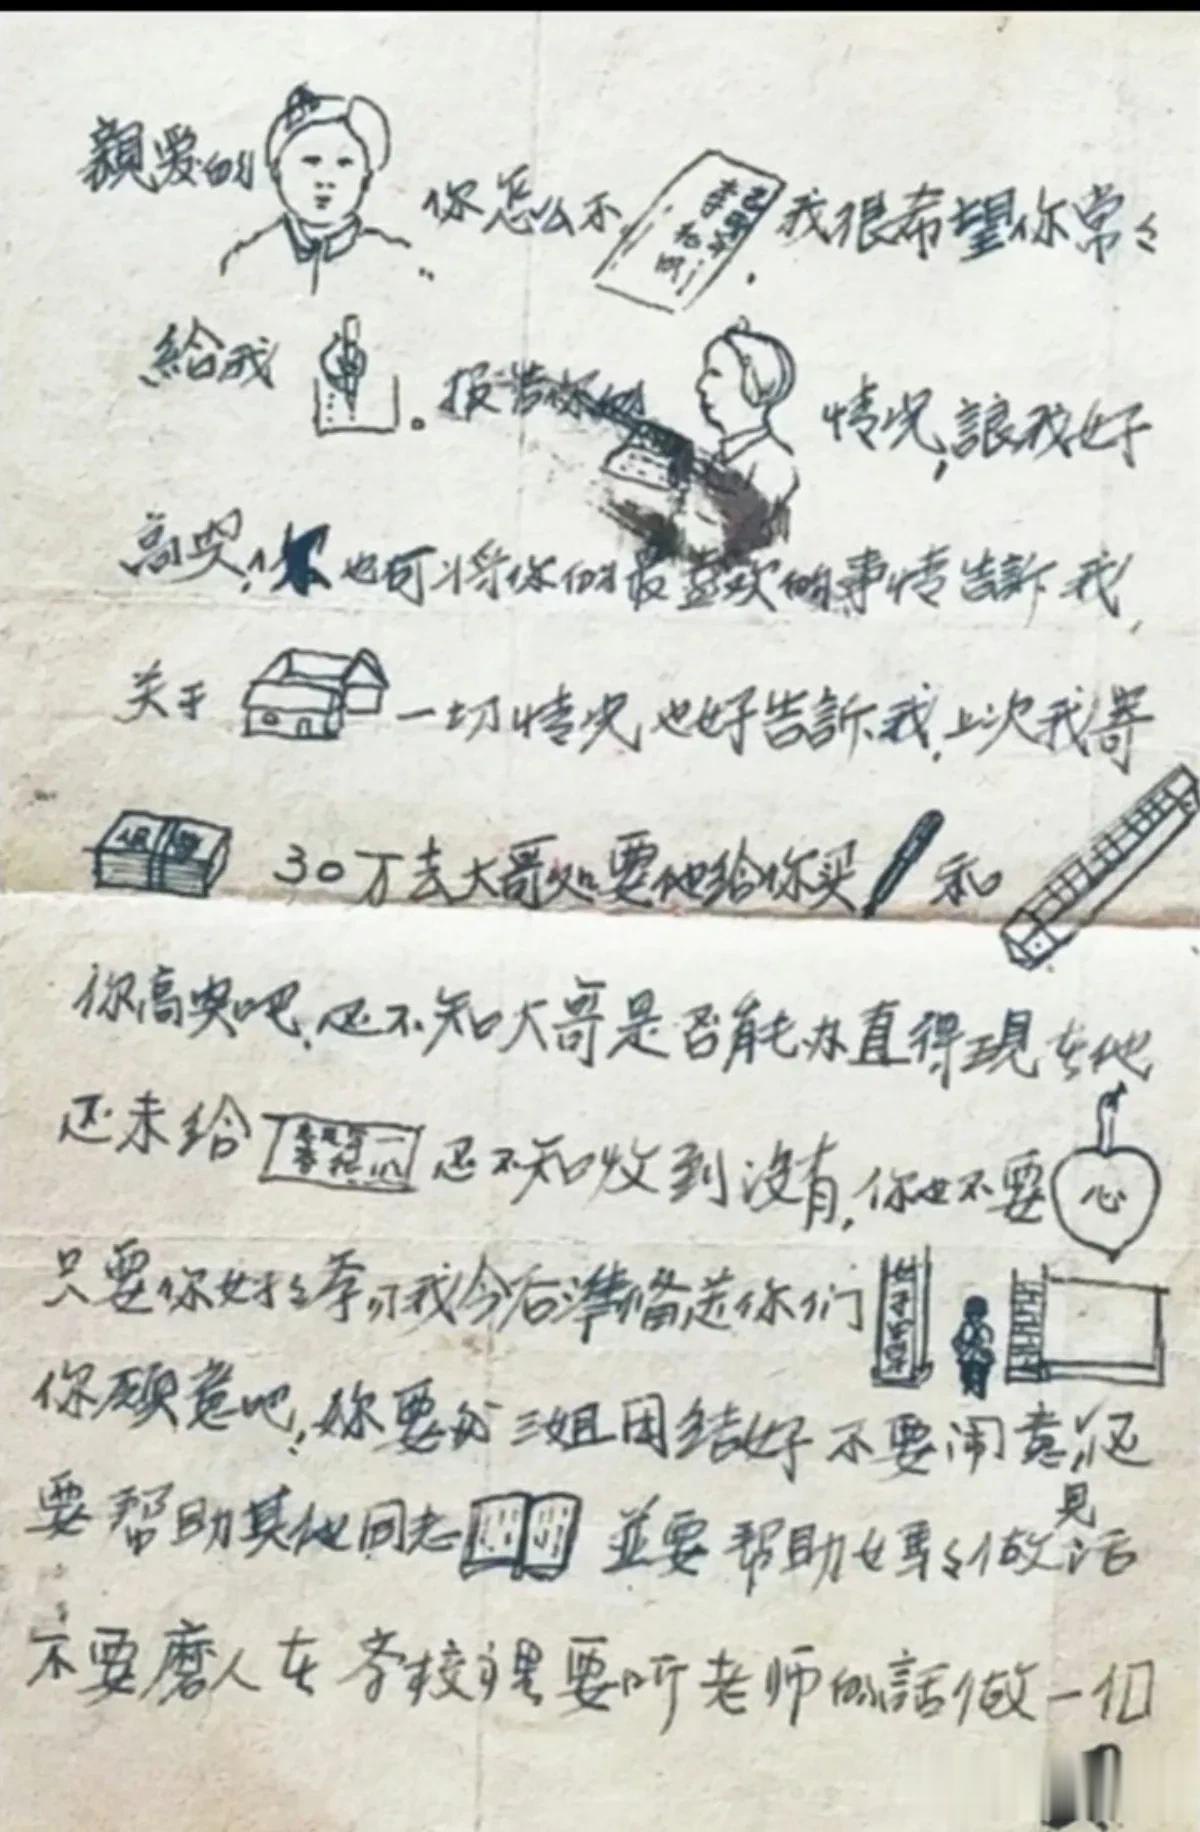 親爱的 你怎么不 我很希望你常々
給我 。报告你的 情况,讓我好
高兴,你也可将你们最喜欢的事情告訴我,
关于 一切情况也好告訴我,上次我寄
30万去大哥处要他给你买 和
你高兴吧,还不知大哥是否能办直得现在他
还未给 还不知收到没有,你也不要 心
只要你好々学习我今后準备送你们
你願意吧,你要 三姐团结好不要闹意见,还
要帮助其他同志 並要帮助妈々做活
不要磨人在学校裡要听老师的話做一個